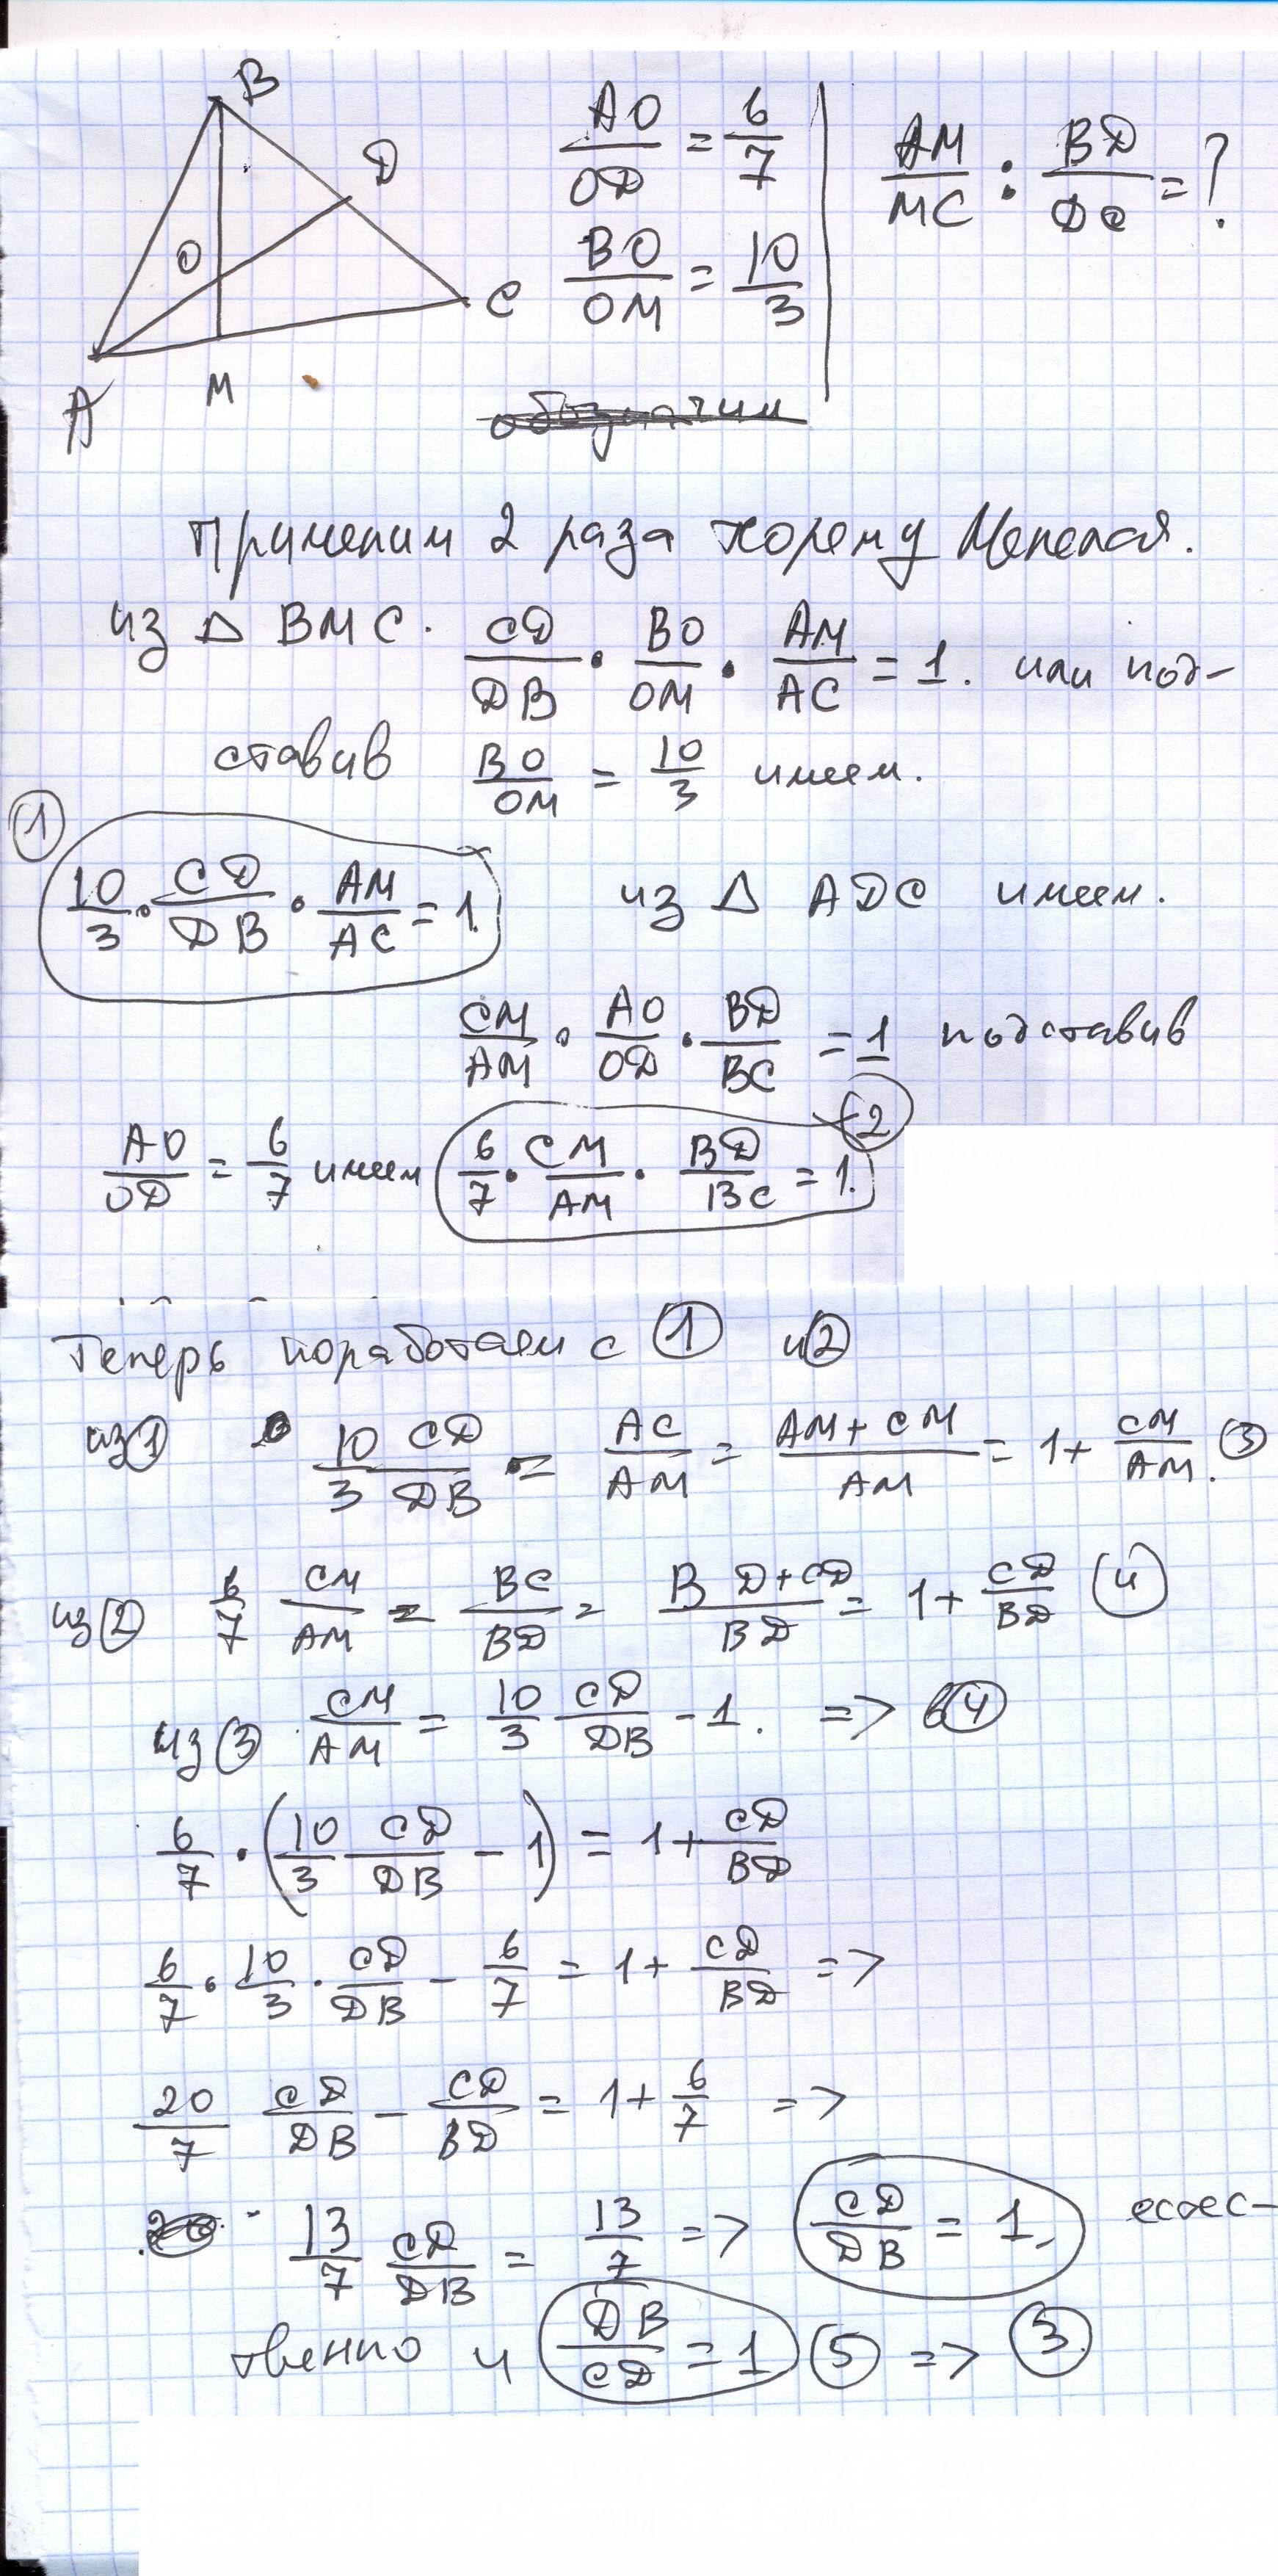 B
D
O
C
A
M
AO/OD = 6/7
BO/OM = 10/3
AM/MC : BD/DC = ?
обозначим
Применим 2 раза теорему Менелая.
из △ BMC. CD/DB · BO/OM · AM/AC = 1. или под-
ставив BO/OM = 10/3 имеем.
① 10/3 · CD/DB · AM/AC = 1 из △ ADC имеем.
CM/AM · AO/OD · BD/BC = 1 подставив
AO/OD = 6/7 имеем 6/7 · CM/AM · BD/BC = 1. ②
Теперь поработаем с ① и ②
из ① 10/3 CD/DB = AC/AM = AM + CM/AM = 1 + CM/AM. ③
из ② 6/7 CM/AM = BC/BD = BD + CD/BD = 1 + CD/BD ④
из ③ CM/AM = 10/3 CD/DB - 1. => в ④
6/7 · (10/3 CD/DB - 1) = 1 + CD/BD
6/7 · 10/3 · CD/DB - 6/7 = 1 + CD/BD =>
20/7 CD/DB - CD/BD = 1 + 6/7 =>
13/7 CD/DB = 13/7 => CD/DB = 1, естес-
твенно и DB/CD = 1 ⑤ => ③